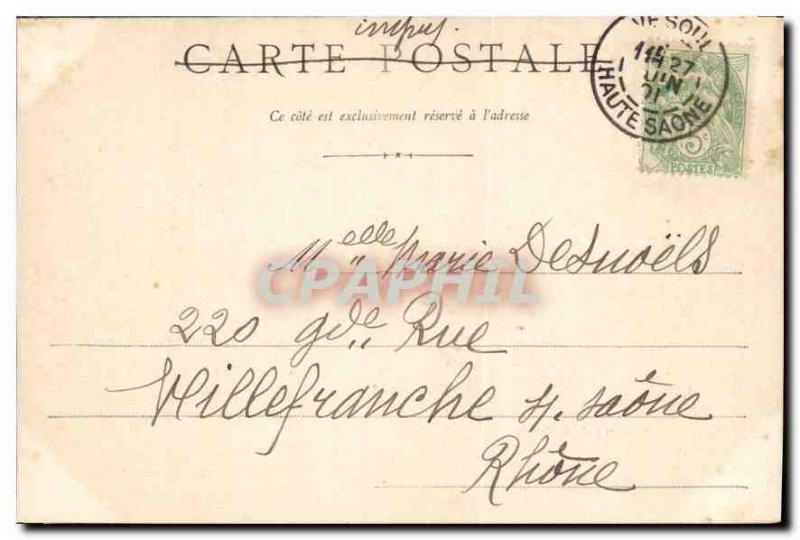 CARTE POSTALE
VESOUL
11H
27
JUIN
01
HAUTE SAONE
5c
POSTES
Ce côté est exclusivement réservé à l'adresse
Melle Marie Desnoëls
CPAPHIL
220 gde Rue
Villefranche s/. saône
Rhône